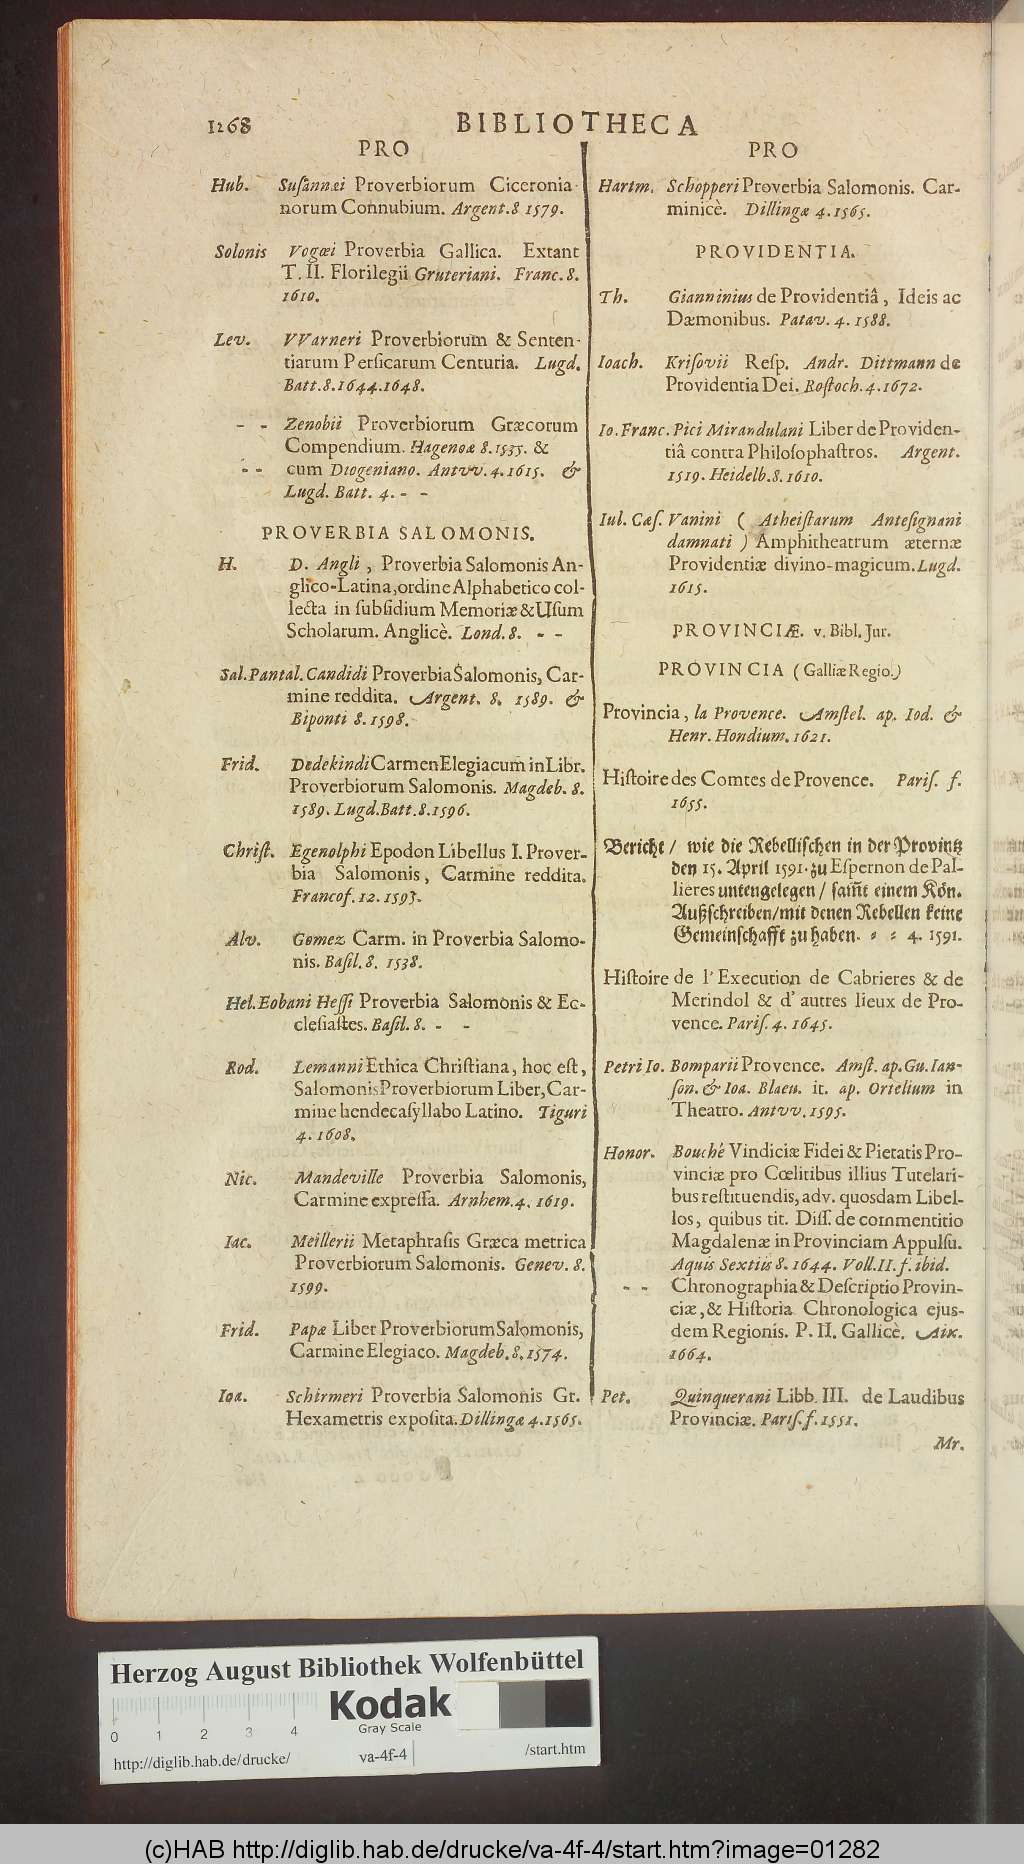 1268
BIBLIOTHECA
PRO
Hub. Suſannæi Proverbiorum Ciceronia-
norum Connubium. Argent. 8 1579.
Solonis Vogæi Proverbia Gallica. Extant
T. II. Florilegii Gruteriani. Franc. 8.
1610.
Lev. VVarneri Proverbiorum & Senten-
tiarum Perſicarum Centuria. Lugd.
Batt. 8. 1644. 1648.
- - Zenobii Proverbiorum Græcorum
Compendium. Hagenoæ 8. 1535. &
- - cum Diogeniano. Antvv. 4. 1615. &
Lugd. Batt. 4. - -
PROVERBIA SALOMONIS.
H. D. Angli, Proverbia Salomonis An-
glico-Latina, ordine Alphabetico col-
lecta in ſubſidium Memoriæ & Uſum
Scholarum. Anglicè. Lond. 8. - -
Sal. Pantal. Candidi Proverbia Salomonis, Car-
mine reddita. Argent. 8. 1589. &
Biponti 8. 1598.
Frid. Dedekindi Carmen Elegiacum in Libr.
Proverbiorum Salomonis. Magdeb. 8.
1589. Lugd. Batt. 8. 1596.
Chriſt. Egenolphi Epodon Libellus I. Prover-
bia Salomonis, Carmine reddita.
Francof. 12. 1593.
Alv. Gomez Carm. in Proverbia Salomo-
nis. Baſil. 8. 1538.
Hel. Eobani Heſſi Proverbia Salomonis & Ec-
cleſiaſtes. Baſil. 8. - -
Rod. Lemanni Ethica Chriſtiana, hoc eſt,
Salomonis Proverbiorum Liber, Car-
mine hendecaſyllabo Latino. Tiguri
4. 1608.
Nic. Mandeville Proverbia Salomonis,
Carmine expreſſa. Arnhem. 4. 1619.
Iac. Meillerii Metaphraſis Græca metrica
Proverbiorum Salomonis. Genev. 8.
1599.
Frid. Papæ Liber Proverbiorum Salomonis,
Carmine Elegiaco. Magdeb. 8. 1574.
Ioa. Schirmeri Proverbia Salomonis Gr.
Hexametris expoſita. Dillingæ 4. 1565.
PRO
Hartm. Schopperi Proverbia Salomonis. Car-
minicè. Dillingæ 4. 1565.
PROVIDENTIA.
Th. Gianninius de Providentiâ, Ideis ac
Dæmonibus. Patav. 4. 1588.
Ioach. Kriſovii Reſp. Andr. Dittmann de
Providentia Dei. Roſtoch. 4. 1672.
Io. Franc. Pici Mirandulani Liber de Providen-
tiâ contra Philoſophaſtros. Argent.
1519. Heidelb. 8. 1610.
Iul. Cæſ. Vanini ( Atheiſtarum Anteſignani
damnati ) Amphitheatrum æternæ
Providentiæ divino-magicum. Lugd.
1615.
PROVINCIÆ. v. Bibl. Jur.
PROVINCIA (Galliæ Regio.)
Provincia, la Provence. Amſtel. ap. Iod. &
Henr. Hondium. 1621.
Hiſtoire des Comtes de Provence. Pariſ. f.
1655.
Bericht / wie die Rebelliſchen in der Provintz
den 15. April 1591. zu Eſpernon de Pal-
lieres untengelegen / ſam̄t einem Kön.
Außſchreiben / mit denen Rebellen keine
Gemeinſchafft zu haben. - - 4. 1591.
Hiſtoire de l'Execution de Cabrieres & de
Merindol & d'autres lieux de Pro-
vence. Pariſ. 4. 1645.
Petri Io. Bomparii Provence. Amſt. ap. Gu. Ian-
ſon. & Ioa. Blaeu. it. ap. Ortelium in
Theatro. Antvv. 1595.
Honor. Bouché Vindiciæ Fidei & Pietatis Pro-
vinciæ pro Cœlitibus illius Tutelari-
bus reſtituendis, adv. quosdam Libel-
los, quibus tit. Diſſ. de commentitio
Magdalenæ in Provinciam Appulſu.
Aquis Sextiis 8. 1644. Voll. II. f. ibid.
- - Chronographia & Deſcriptio Provin-
ciæ, & Hiſtoria Chronologica ejus-
dem Regionis. P. II. Gallicè. Aix.
1664.
Pet. Quinquerani Libb. III. de Laudibus
Provinciæ. Pariſ. f. 1551.
Mr.
Herzog August Bibliothek Wolfenbüttel
Kodak
Gray Scale
0 1 2 3 4
http://diglib.hab.de/drucke/ va-4f-4 /start.htm
(c)HAB http://diglib.hab.de/drucke/va-4f-4/start.htm?image=01282